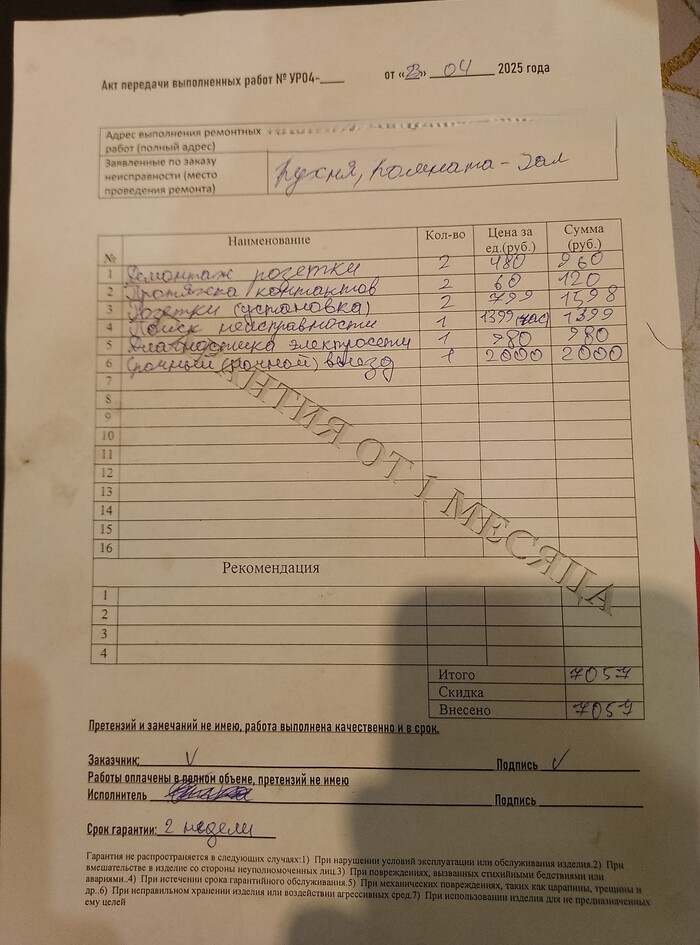 Акт передачи выполненных работ № УР04-____ от «23» 04 2025 года
Адрес выполнения ремонтных
работ (полный адрес)
Заявленные по заказу
неисправности (место
проведения ремонта)
кухня, комната - зал
№ Наименование Кол-во Цена за ед.(руб.) Сумма (руб.)
1 Демонтаж розетки 2 480 960
2 Протяжка контактов 2 60 120
3 Розетки (установка) 2 799 1598
4 Поиск неисправности 1 1399 (час) 1399
5 Диагностика электросети 1 980 980
6 Срочный (ночной) выезд 1 2000 2000
7
8
9
10
11
12
13
14
15
16
АНТИЯ ОТ 1 МЕСЯЦА
Рекомендация
1
2
3
4
Итого 7057
Скидка
Внесено 7057
Претензий и замечаний не имею, работа выполнена качественно и в срок.
Заказчик: V Подпись V
Работы оплачены в полном объеме, претензий не имею
Исполнитель Подпись
Срок гарантии: 2 недели
Гарантия не распространяется в следующих случаях:1) При нарушении условий эксплуатации или обслуживания изделия.2) При
вмешательстве в изделие со стороны неуполномоченных лиц.3) При повреждениях, вызванных стихийными бедствиями или
авариями..4) При истечении срока гарантийного обслуживания.5) При механических повреждениях, таких как царапины, трещины и
др..6) При неправильном хранении изделия или воздействии агрессивных сред.7) При использовании изделия для не предназначенных
ему целей